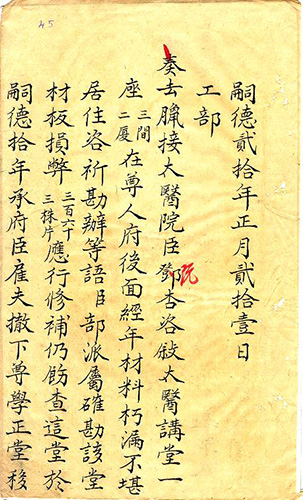 45
嗣德貳拾年正月貳拾壹日
工部
奏去臘接太醫院臣鄧阮杏咨敍太醫講堂一
座三間二厦在尊人府後面經年材料朽漏不堪
居住咨祈勘辦等語臣部派屬確勘該堂
材板損弊三百六十三株片應行修補仍飭查這堂於
嗣德拾年承府臣雇夫撤下尊學正堂移